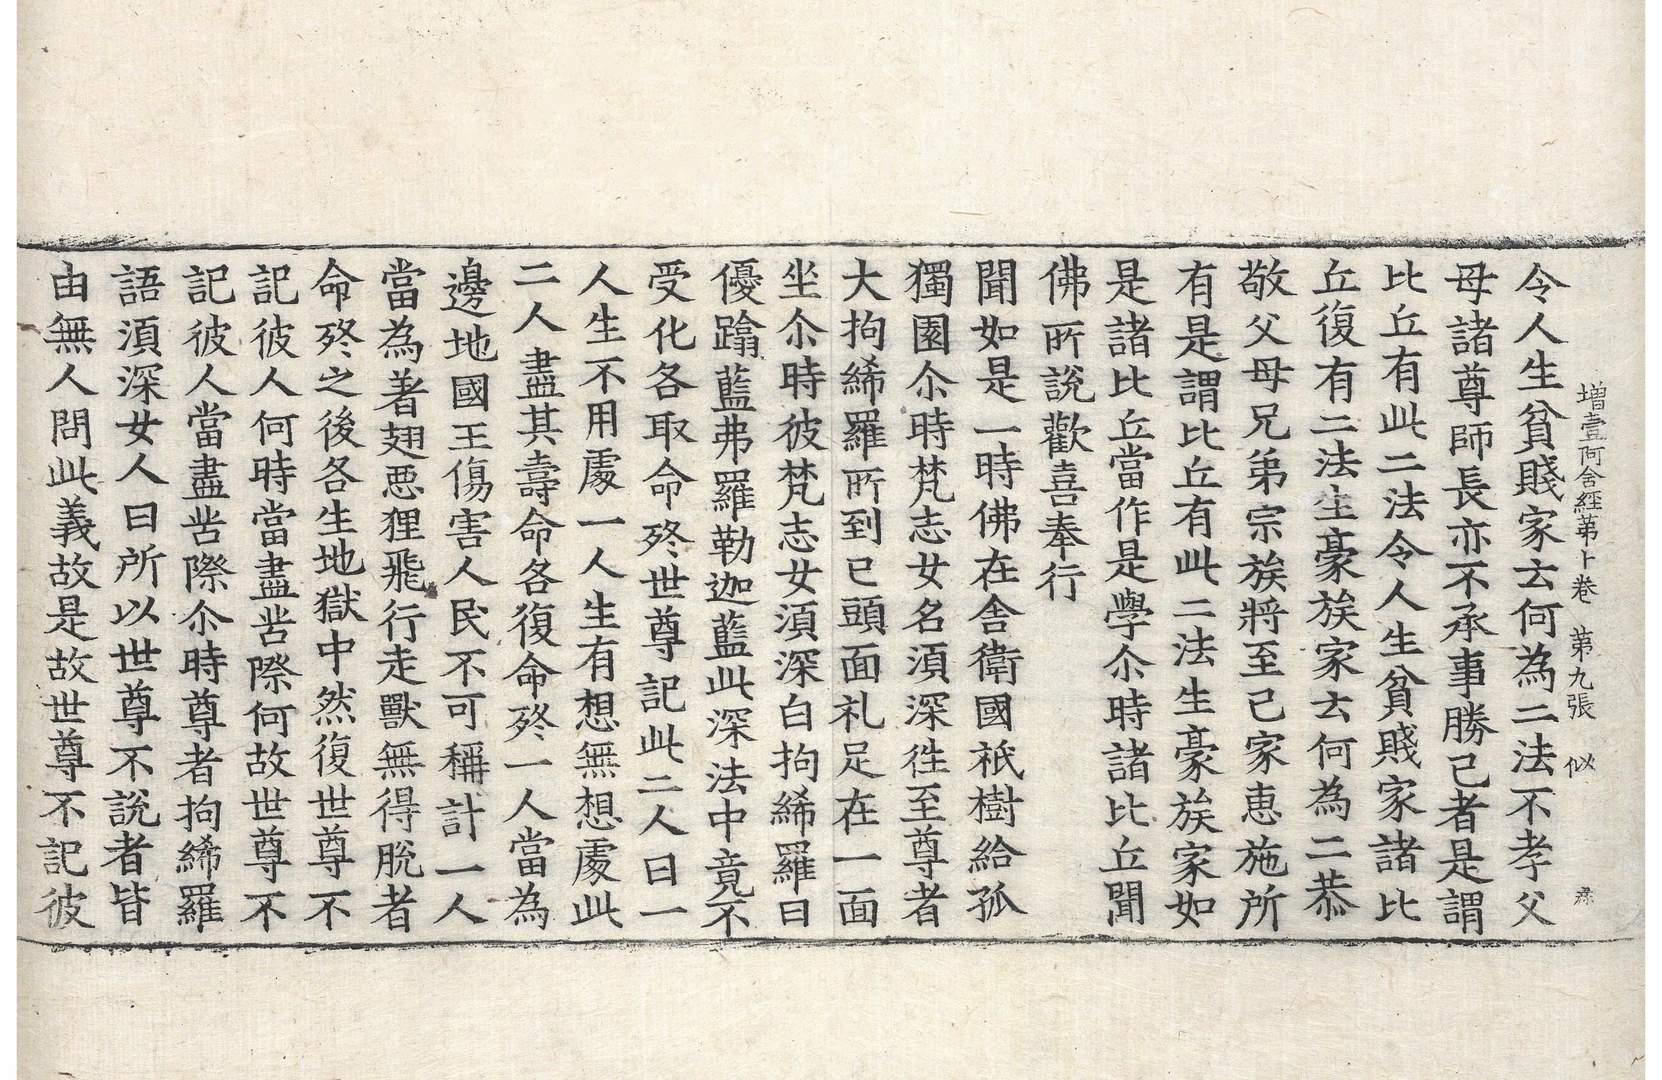 增壹阿含經第十卷 第九張 似
令人生貧賤家云何為二法不孝父
母諸尊師長亦不承事勝己者是謂
比丘有此二法令人生貧賤家諸比
丘復有二法生豪族家云何為二恭
敬父母兄弟宗族將至己家惠施所
有是謂比丘有此二法生豪族家如
是諸比丘當作是學尒時諸比丘聞
佛所說歡喜奉行
聞如是一時佛在舍衛國祇樹給孤
獨園尒時梵志女名須深徃至尊者
大拘絺羅所到已頭面礼足在一面
坐尒時彼梵志女須深白拘絺羅曰
優蹹藍弗羅勒迦藍此深法中竟不
受化各取命終世尊記此二人曰一
人生不用處一人生有想無想處此
二人盡其壽命各復命終一人當為
邊地國王傷害人民不可稱計一人
當為著翅惡狸飛行走獸無得脫者
命終之後各生地獄中然復世尊不
記彼人何時當盡苦際何故世尊不
記彼人當盡苦際尒時尊者拘絺羅
語須深女人曰所以世尊不說者皆
由無人問此義故是故世尊不記彼